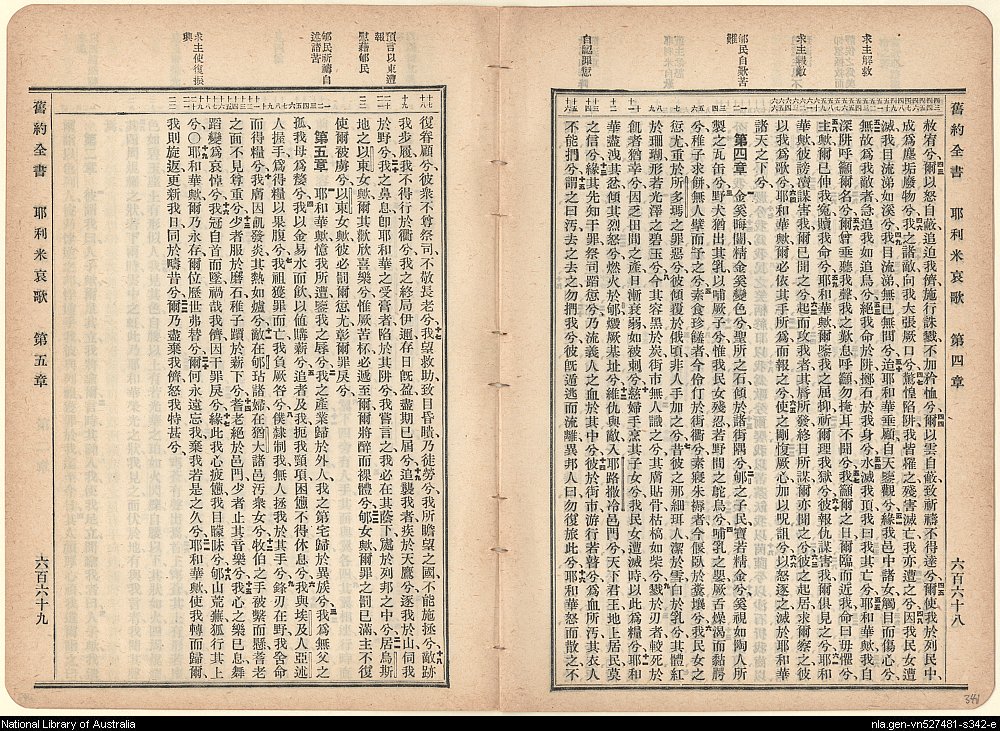 舊約全書 耶利米哀歌 第四章 六百六十八
求主解救
求主報敵
郇民自歎苦難
自認罪愆
赦宥兮爾以怒自蔽追迫我儕施行誅戮不加矜恤兮爾以雲自蔽致祈禱不得達兮爾使我於列民中
成爲塵垢廢物兮我之諸敵向我大張厥口兮驚惶陷阱我皆罹之殘害滅亡我亦遭之兮因我民女遭
滅我目流涕如溪兮我目流涕無已無間兮迨耶和華垂顧自天鑒觀兮緣我邑中諸女觸目而傷心兮
無故爲我敵者急追我如追鳥兮絕我命於阱擲石於我身兮水滅我頂我曰我其亡兮耶和華歟我自
深阱呼籲爾名兮爾曾垂聽我聲我之歎息呼籲勿掩耳不聞兮我籲爾之日爾臨而近我命曰毋懼兮
主歟爾已伸我冤贖我命兮耶和華歟爾鑒我之屈抑祈爾理我獄兮彼報仇謀害我爾俱見之兮耶和
華歟彼謗讟謀害我爾已聞之兮起而攻我者其脣所發終日所謀爾亦聞之兮彼之起居求爾察之彼
以我爲歌兮耶和華歟爾必依其手所爲而報之兮使之剛愎厥心加以呪詛兮以怒逐之滅之於耶和華
諸天之下兮
第四章 金奚晦闇精金奚變色兮聖所之石傾於諸街隅兮郇之子民寶若精金兮奚視如陶人所
製之瓦缶兮野犬猶出其乳以哺厥子兮惟我民女殘忍若野間之鴕鳥兮哺乳之嬰厥舌燥渴而黏腭
兮稚子求餅無人擘而予之兮素食珍饈者兮伶仃於街衢兮素寢朱褥者兮偃臥於糞壤兮我民女之
愆尤重於所多瑪之罪惡兮彼傾覆於俄頃非人手加之兮昔彼之那細耳人潔於雪白於乳兮其體紅
於珊瑚形若光澤之碧玉兮今其容黑於炭街市無人識之兮其膚貼骨枯槁如柴兮戮於刃者較死於
飢者猶幸兮因乏田之產日漸衰弱如被刺兮慈婦手烹其子女兮我民女遭滅時以此爲糧兮耶和
華盡洩其忿傾其烈怒兮燃火於郇燬厥基址兮維仇與敵入耶路撒冷邑門兮天下君王地上居民莫
之信兮緣其先知干罪祭司蹈愆兮乃流義人之血於其中兮彼於街市游行若瞽兮爲血所汚其衣人
不能捫兮謂之曰汚去之去之勿捫我兮彼旣遁逃而流離異邦人曰勿復旅此兮耶和華怒而散之不
預言以東遭報
慰藉郇民
郇民祈禱自述諸苦
求主使復振興
復眷顧兮彼衆不尊祭司不敬長老兮我望救助致目昏瞶乃徒勞兮我所瞻望之國不能施拯兮敵跡
我步履我不得行於衢兮我之終局伊邇存日旣盈盡期已屆兮追襲我者疾於天鷹兮逐我於山伺我
於野兮我之鼻息卽耶和華之受膏者陷於其阱兮我嘗言之我必在其蔭下處於列邦之中兮居烏斯
地之以東女歟爾其歡欣喜樂兮惟厥苦杯必遞至爾爾將醉而裸體兮郇女歟爾罪之罰已滿主不復
使爾被虜兮以東女歟彼必罰爾愆尤彰爾罪戾兮
第五章 耶和華歟憶我所遭鑒我之辱兮我之產業歸於外人我之第宅歸於異族兮我爲無父之
孤我母爲嫠兮我以金易水而飲以値購薪兮追者及我扼我頸項困憊不得休息兮我與埃及人亞述
人握手爲得糧以果腹兮我祖獲罪而亡我負厥咎兮僕隸制我無人拯我於其手兮鋒刃在野我舍命
而得糧兮我膚因飢發炎其熱如爐兮敵在郇玷諸婦在猶大諸邑汚衆女兮牧伯之手被繫而懸耆老
之面不見尊重兮少者服於磨石稚子躓於薪下兮耆老絕於邑門少者止其音樂兮我心之樂已息舞
蹈變爲哀悼兮我冠自首而墜禍哉我儕因干罪戾兮緣此我心疲憊我目矇昧兮郇山荒蕪狐行其上
兮〇耶和華歟爾乃永存爾位歷世弗替兮爾何永遠忘我棄我若是之久兮耶和華歟使我轉而歸爾
我則旋返更新我日同於疇昔兮爾乃盡棄我儕怒我特甚兮
舊約全書 耶利米哀歌 第五章 六百六十九
348
National Library of Australia
nla.gen-vn527481-s342-e